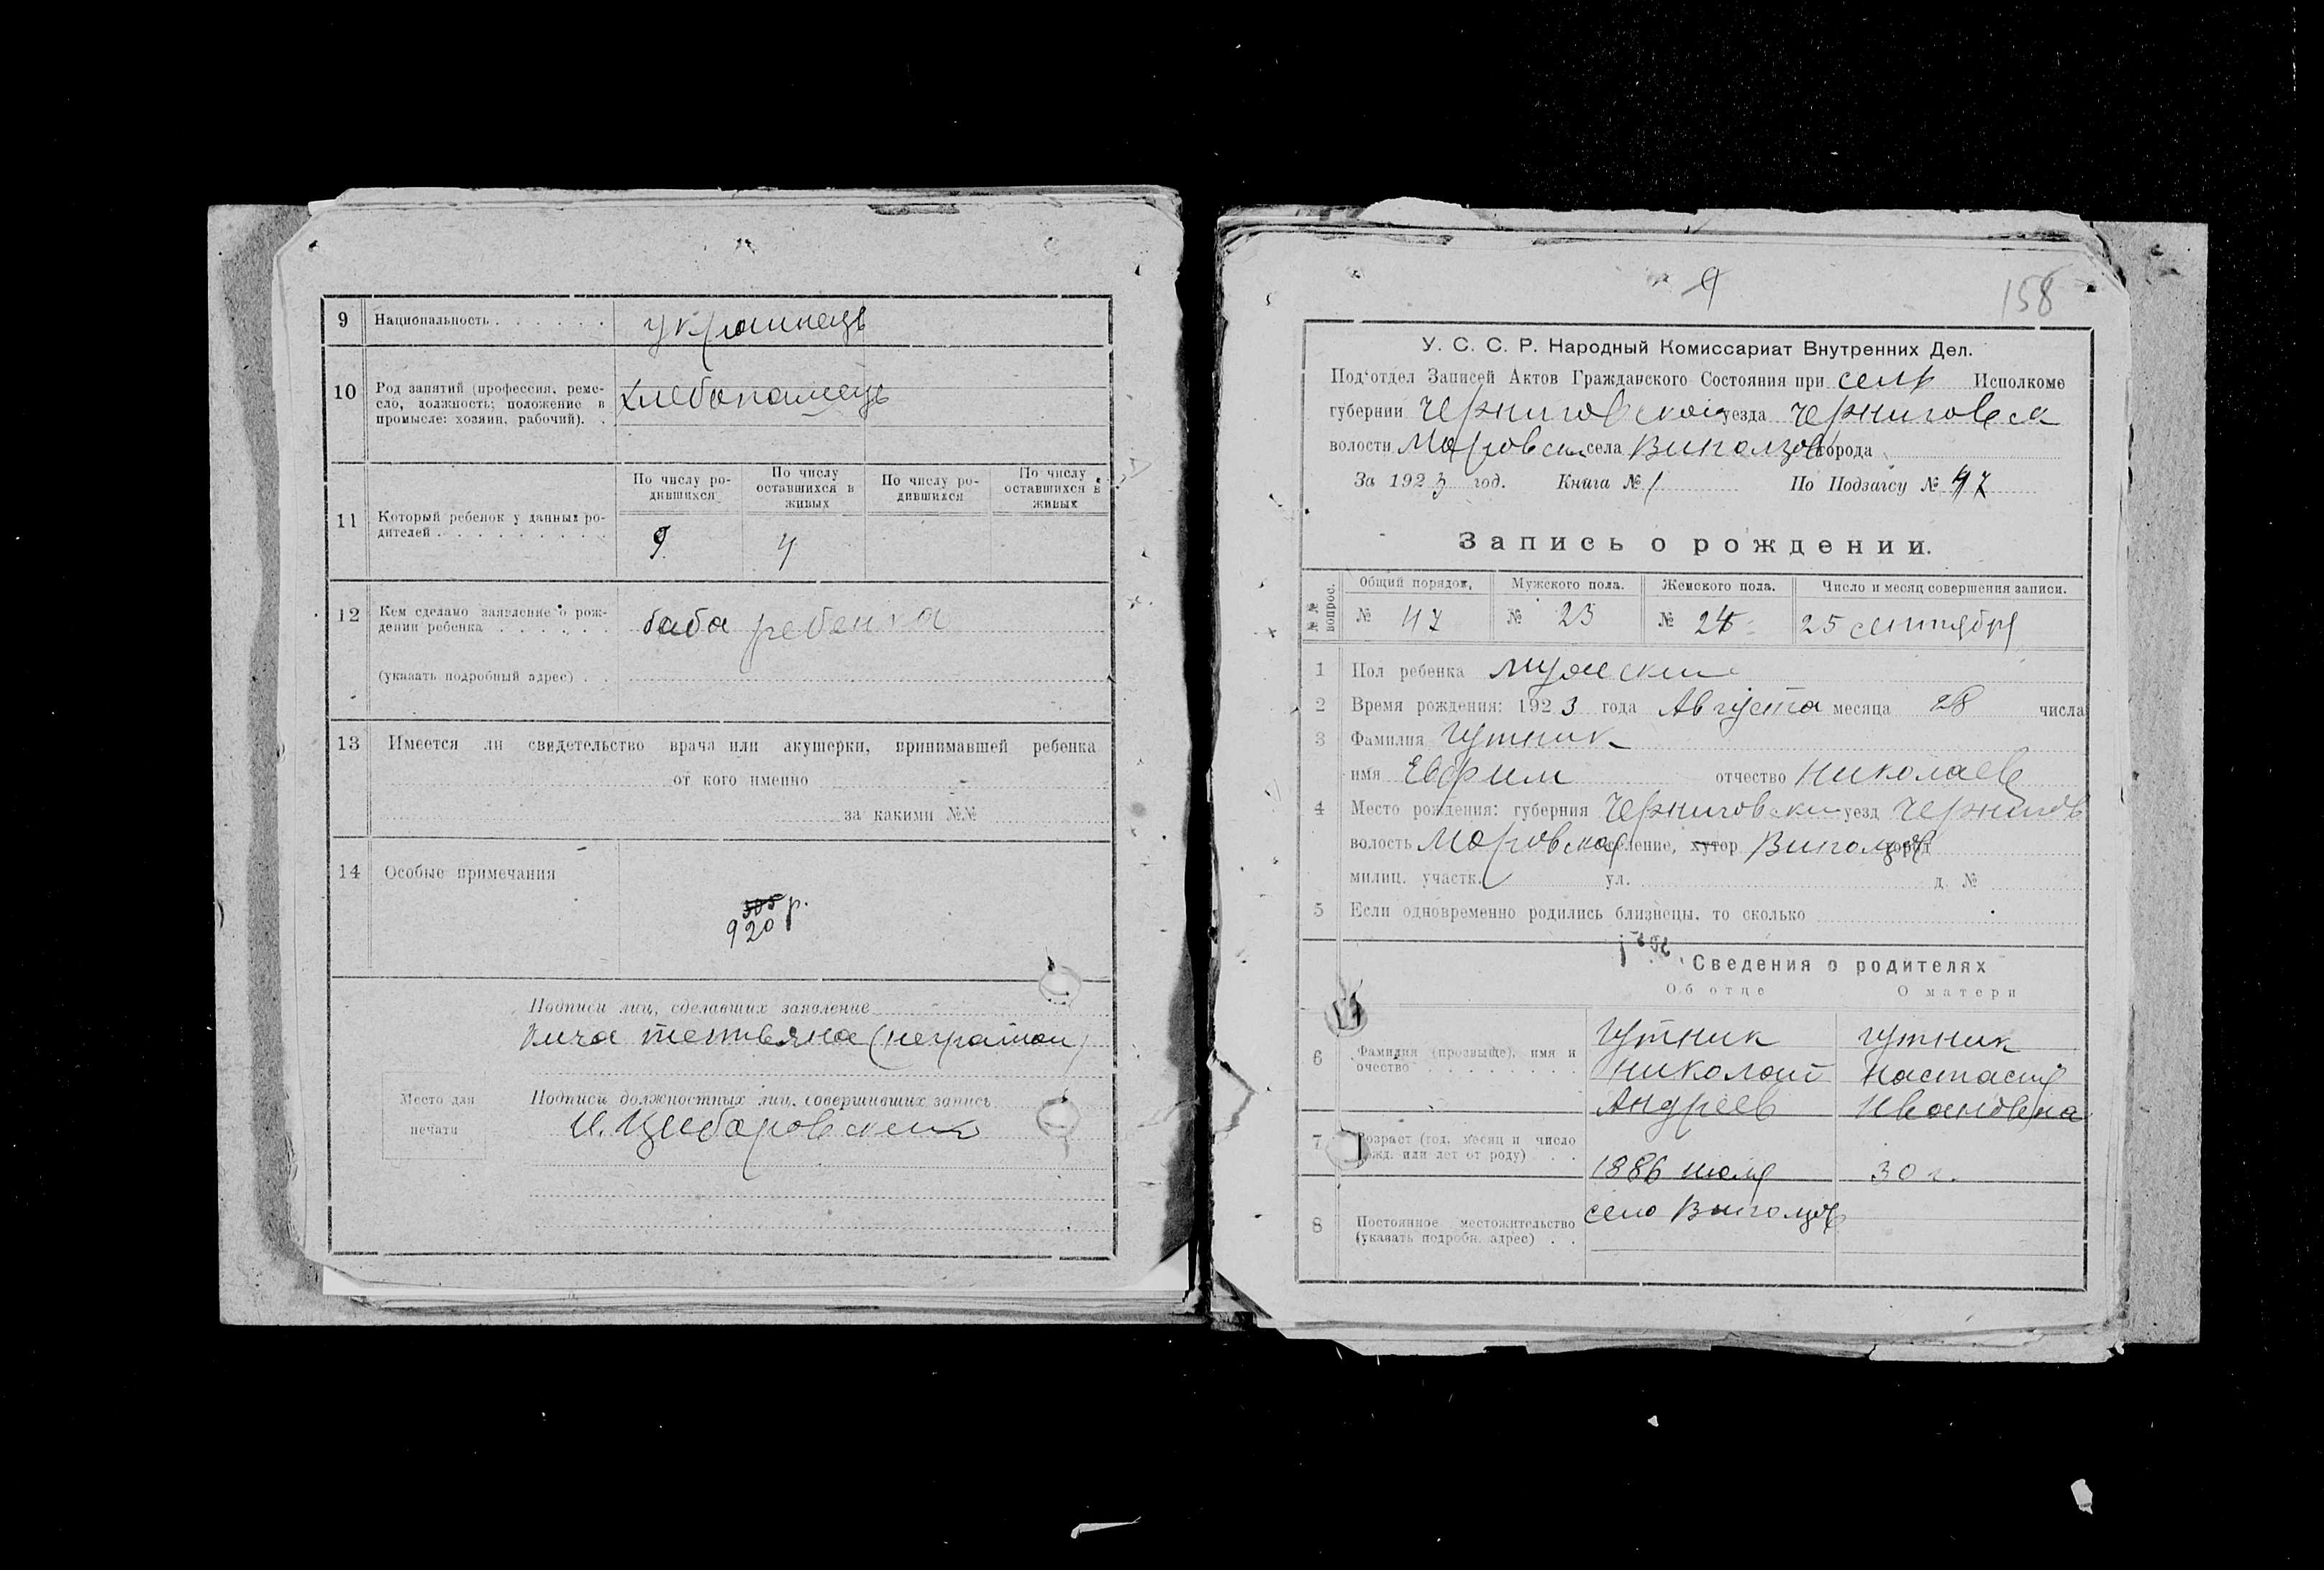 9 Национальность украинець
10 Род занятий (профессия, реме-
сло, должность; положение в
промысле: хозяин, рабочий). хлебопашець
По числу ро-
дившихся
По числу
оставшихся в
живых
По числу ро-
дившихся
По числу
оставшихся в
живых
11 Который ребенок у данных ро-
дителей 9 4
12 Кем сделано заявление о рож-
дении ребенка баба ребенка
(указать подробный адрес)
13 Имеется ли свидетельство врача или акушерки, принимавшей ребенка
от кого именно
за какими №№
14 Особые примечания
р.
920
Подписи лиц, сделавших заявление
(неграмот)
Место для
печати
Подписи должностных лиц, совершивших запись
И. Цибаровский
9
158
У. С. С. Р. Народный Комиссариат Внутренних Дел.
Под'отдел Записей Актов Гражданского Состояния при сель Исполкоме
губернии Черниговской уезда Черниговск
волости Моровск села Виползов города
За 1923 год. Книга № 1 По Подзагсу № 47
Запись о рождении.
№№ вопрос.
Общий порядок, Мужского пола. Женского пола. Число и месяц совершения записи.
№ 47 № 23 № 24 25 сентября
1 Пол ребенка мужский
2 Время рождения: 1923 года Августа месяца 28 числа
3 Фамилия Гутник
имя Евфим отчество Николаев
4 Место рождения: губерния Черниговский уезд Чернигов
волость Моровская селение, хутор Виползов город
милиц. участк. ул. д. №
5 Если одновременно родились близнецы, то сколько
Сведения о родителях
Об отце О матери
6 Фамилия (прозвище), имя и
очество
Гутник Гутник
Николай Настасия
Андреев Ивановна
7 Возраст (год, месяц и число
рожд. или лет от роду)
1886 июля 30 г.
8 Постоянное местожительство
(указать подробн. адрес)
село Виползов